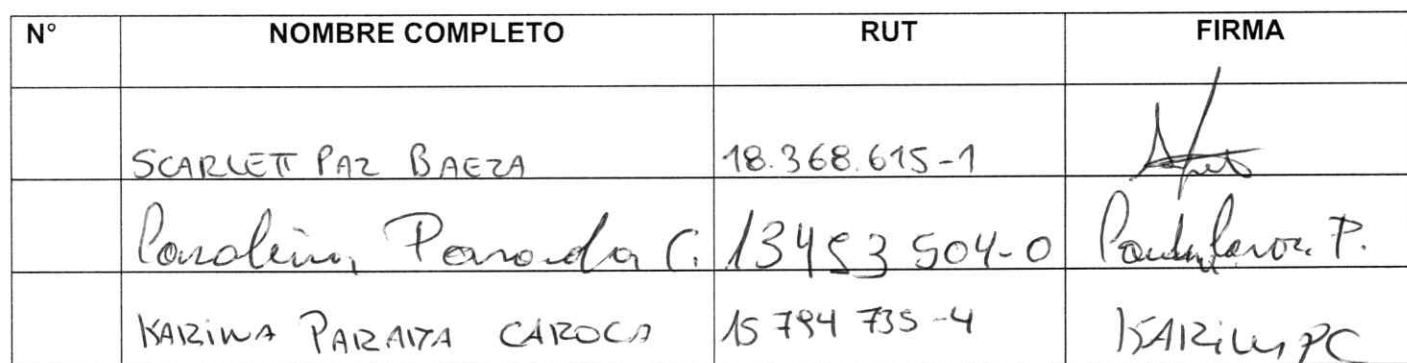 N° NOMBRE COMPLETO RUT FIRMA
SCARLETT PAZ BAEZA 18.368.615-1
Carolina Parada C. 13453504-0 P.
KARINA CAROCA 15 794 735-4 KARINA PC